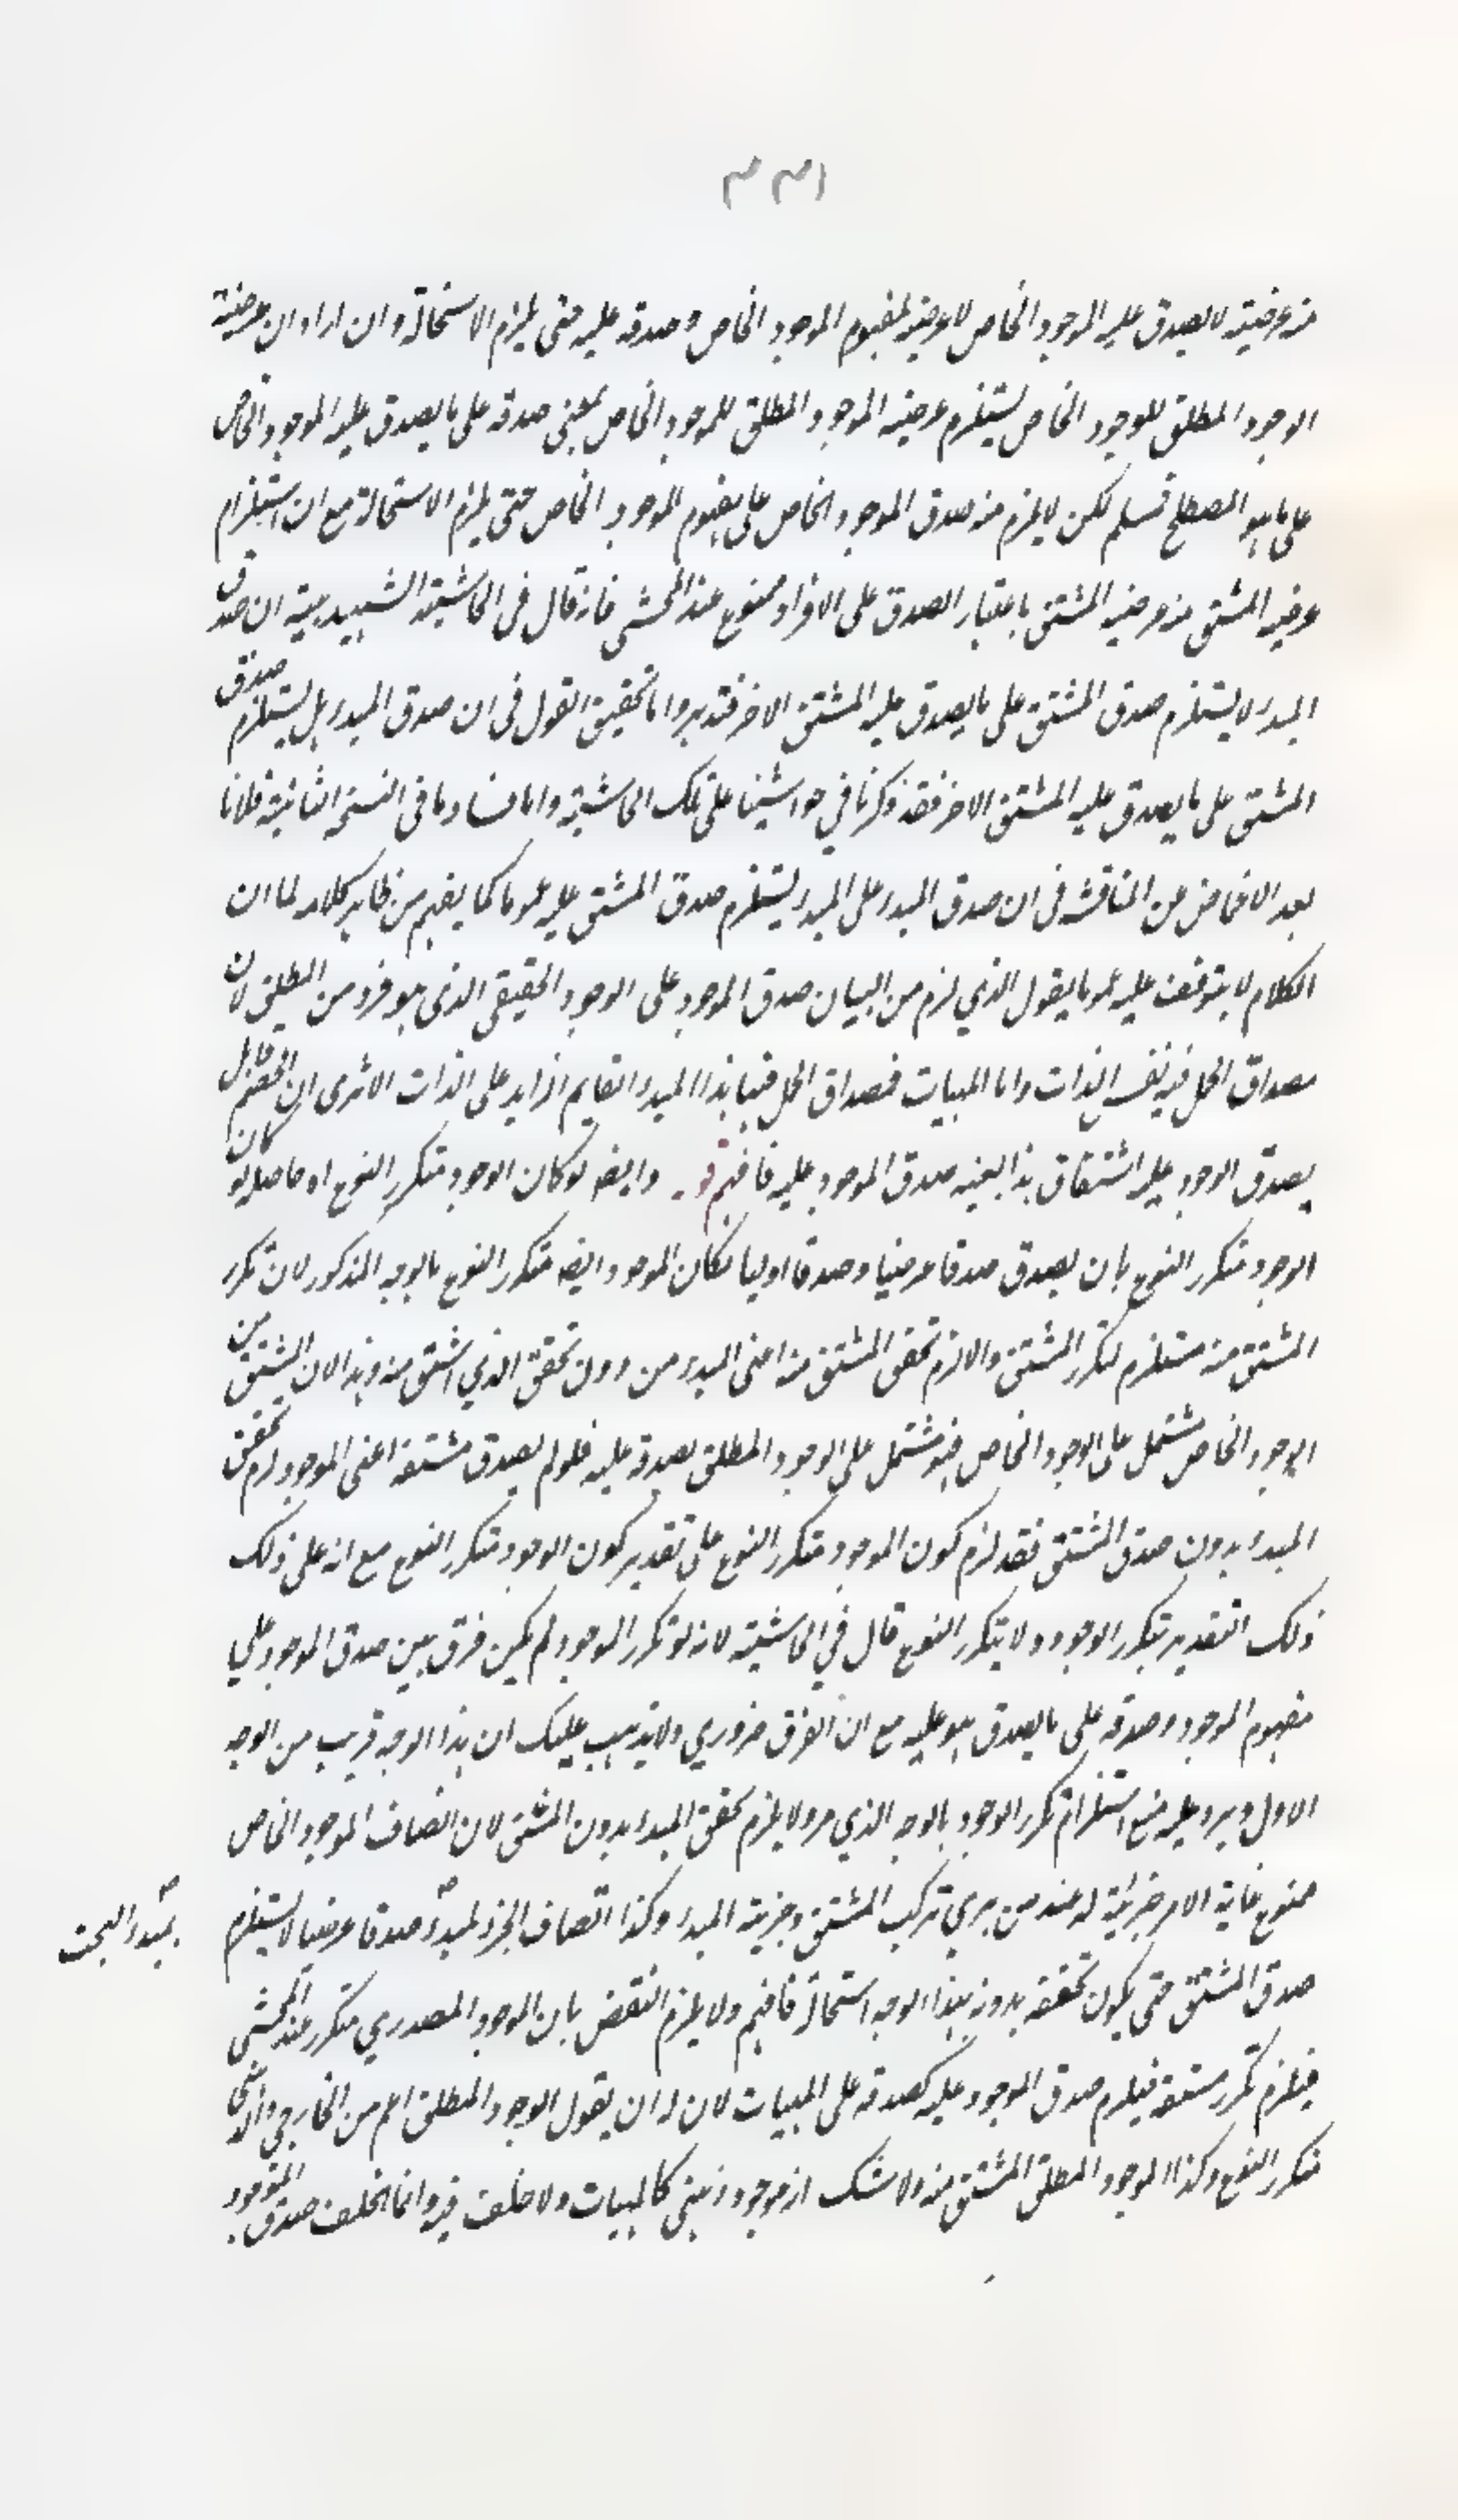 ١٣٣
من عرضيته لا يصدق عليه الموجود الخاص لا عرضيته لمفهوم الموجود الخاص وصدقه عليه حتى يلزم الاستحالة وان اراد ان عرضية
الوجود المطلق للوجود الخاص يستلزم عرضية الموجود المطلق للموجود الخاص بمعنى صدقه على ما يصدق عليه الموجود الخاص
على ما هو المصطلح فمسلم لكن لا يلزم منه صدق الموجود الخاص على مفهوم الموجود الخاص حتى يلزم الاستحالة مع ان استلزام
عرضية المشتق من عرضية المشتق باعتبار الصدق على الافراد ممنوع عند المحشي فانه قال في الحاشية التهذيبية ان صدق
المبدء لا يستلزم صدق المشتق على ما يصدق عليه المشتق الاخر فتدبر واما تحقيق القول في ان صدق المبدء هل يستلزم صدق
المشتق على ما يصدق عليه المشتق الاخر فقد ذكرنا في حواشينا على تلك الحاشية واما فساد ما في النسخة الثانية فلانا
بعد الاغماض عن المناقشة في ان صدق المبدء على المبدء يستلزم صدق المشتق عليه عموما كما يفهم من ظاهر كلامه لما ان
الكلام لا يتوقف عليه عموما يقول الذي لزم من البيان صدق الموجود على الوجود الحقيقي الذي هو فرد من المطلق لان
مصداق الحمل فيه نفس الذات واما المهيات فمصداق الحمل فيها هذا المبدء القايم الزايد على الذات الا ترى ان الخصم قائل
يصدق الوجود عليه اشتقاق هذا بعينه صدق الموجود عليه فافهم قوله وايضا لو كان الوجود متكرر النوع اه حاصله لو كان
الوجود متكرر النوع بان يصدق صدقا عرضيا وصدقا اوليا لكان الموجود ايضا متكرر النوع بالوجه المذكور لان تكرر
المشتق منه مستلزم لتكرر المشتق والا لزم تحقق المشتق منه اعني المبدء من دون تحقق الذي اشتق منه وهذا لان المشتق من
الوجود الخاص مشتمل على الوجود الخاص فهو مشتمل على الوجود المطلق بصدقه عليه فلو لم يصدق مشتقه اعني الموجود لزم تحقق
المبدء بدون صدق المشتق فقد لزم كون الموجود متكرر النوع على تقدير كون الوجود متكرر النوع مع انه على ذلك
ذلك التقدير يتكرر الوجود ولا يتكرر النوع قال في الحاشية لانه لو تكرر الموجود لم يكن فرق بين صدق الموجود على
مفهوم الموجود وصدقه على ما يصدق هو عليه مع ان الفرق ضروري ولا يذهب عليك ان هذا الوجه قريب من الوجه
الاول ويرد عليه منع استلزام تكرر الوجود بالوجه الذي مر ولا يلزم تحقق المبدء بدون المشتق لان اتصاف الموجود الخاص
ممنوع غاية الامر جزئية له عند من يرى تركيب المشتق وجزئية المبدء وكذا اتصاف الجزء لمبدء صدقا عرضيا لا يستلزم
بمبدء البحت
صدق المشتق حتى يكون تحققه بدونه بهذا الوجه استحالة فافهم ولا يلزم النقض بان الوجود المصدري متكرر عند المحشي
فيلزم تكرر مشتقه فيلزم صدق الموجود عليه كصدقه على المهيات لان له ان يقول الوجود المطلق اعم من الخارجي
متكرر النوع وكذا الموجود المطلق المشتق منه ولا شك انه موجود ذهني كالمهيات ولا خلف فيه وانما الخلف صدق الموجود